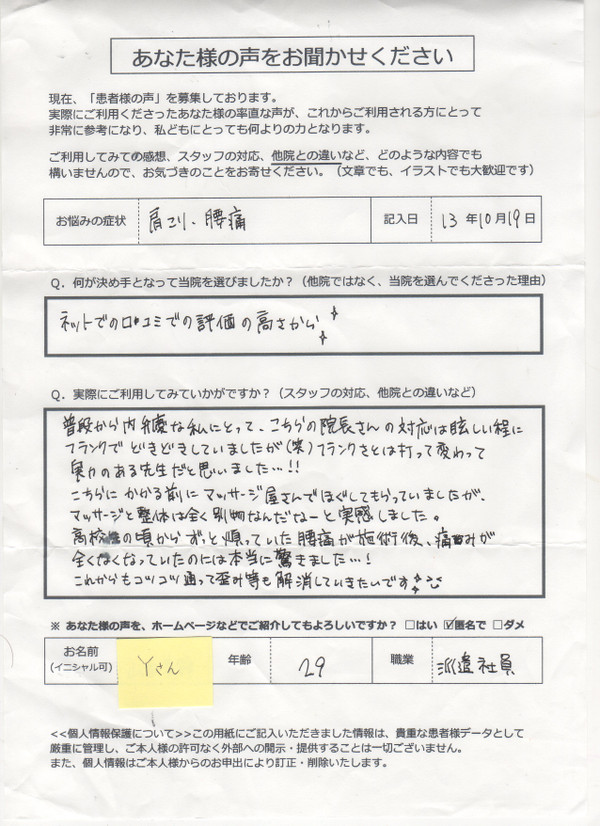 あなた様の声をお聞かせください
現在、「患者様の声」を募集しております。
実際にご利用くださったあなた様の率直な声が、これからご利用される方にとって
非常に参考になり、私どもにとっても何よりの力となります。
ご利用してみての感想、スタッフの対応、他院との違いなど、どのような内容でも
構いませんので、お気づきのことをお寄せください。（文章でも、イラストでも大歓迎です）
お悩みの症状 肩こり、腰痛 記入日 13年10月19日
Q．何が決め手となって当院を選びましたか？（他院ではなく、当院を選んでくださった理由）
ネットでの口コミでの評価の高さから
Q．実際にご利用してみていかがですか？（スタッフの対応、他院との違いなど）
普段から内弁慶な私にとって、こちらの院長さんの対応は眩しい程に
フランクでどきどきしていましたが(笑)フランクさとは打って変わって
実力のある先生だと思いました…!!
こちらにかかる前にマッサージ屋さんでほぐしてもらっていましたが、
マッサージと整体は全く別物なんだなーと実感しました。
高校の頃からずっと煩っていた腰痛が施術後、痛みが
全くなくなっていたのには本当に驚きました…!
これからもコツコツ通って歪み等も解消していきたいです
※ あなた様の声を、ホームページなどでご紹介してもよろしいですか？ □はい ☑匿名で □ダメ
お名前 Yさん 年齢 29 職業 派遣社員
（イニシャル可）
<<個人情報保護について>>この用紙にご記入いただきました情報は、貴重な患者様データとして
厳重に管理し、ご本人様の許可なく外部への開示・提供することは一切ございません。
また、個人情報はご本人様からのお申出により訂正・削除いたします。